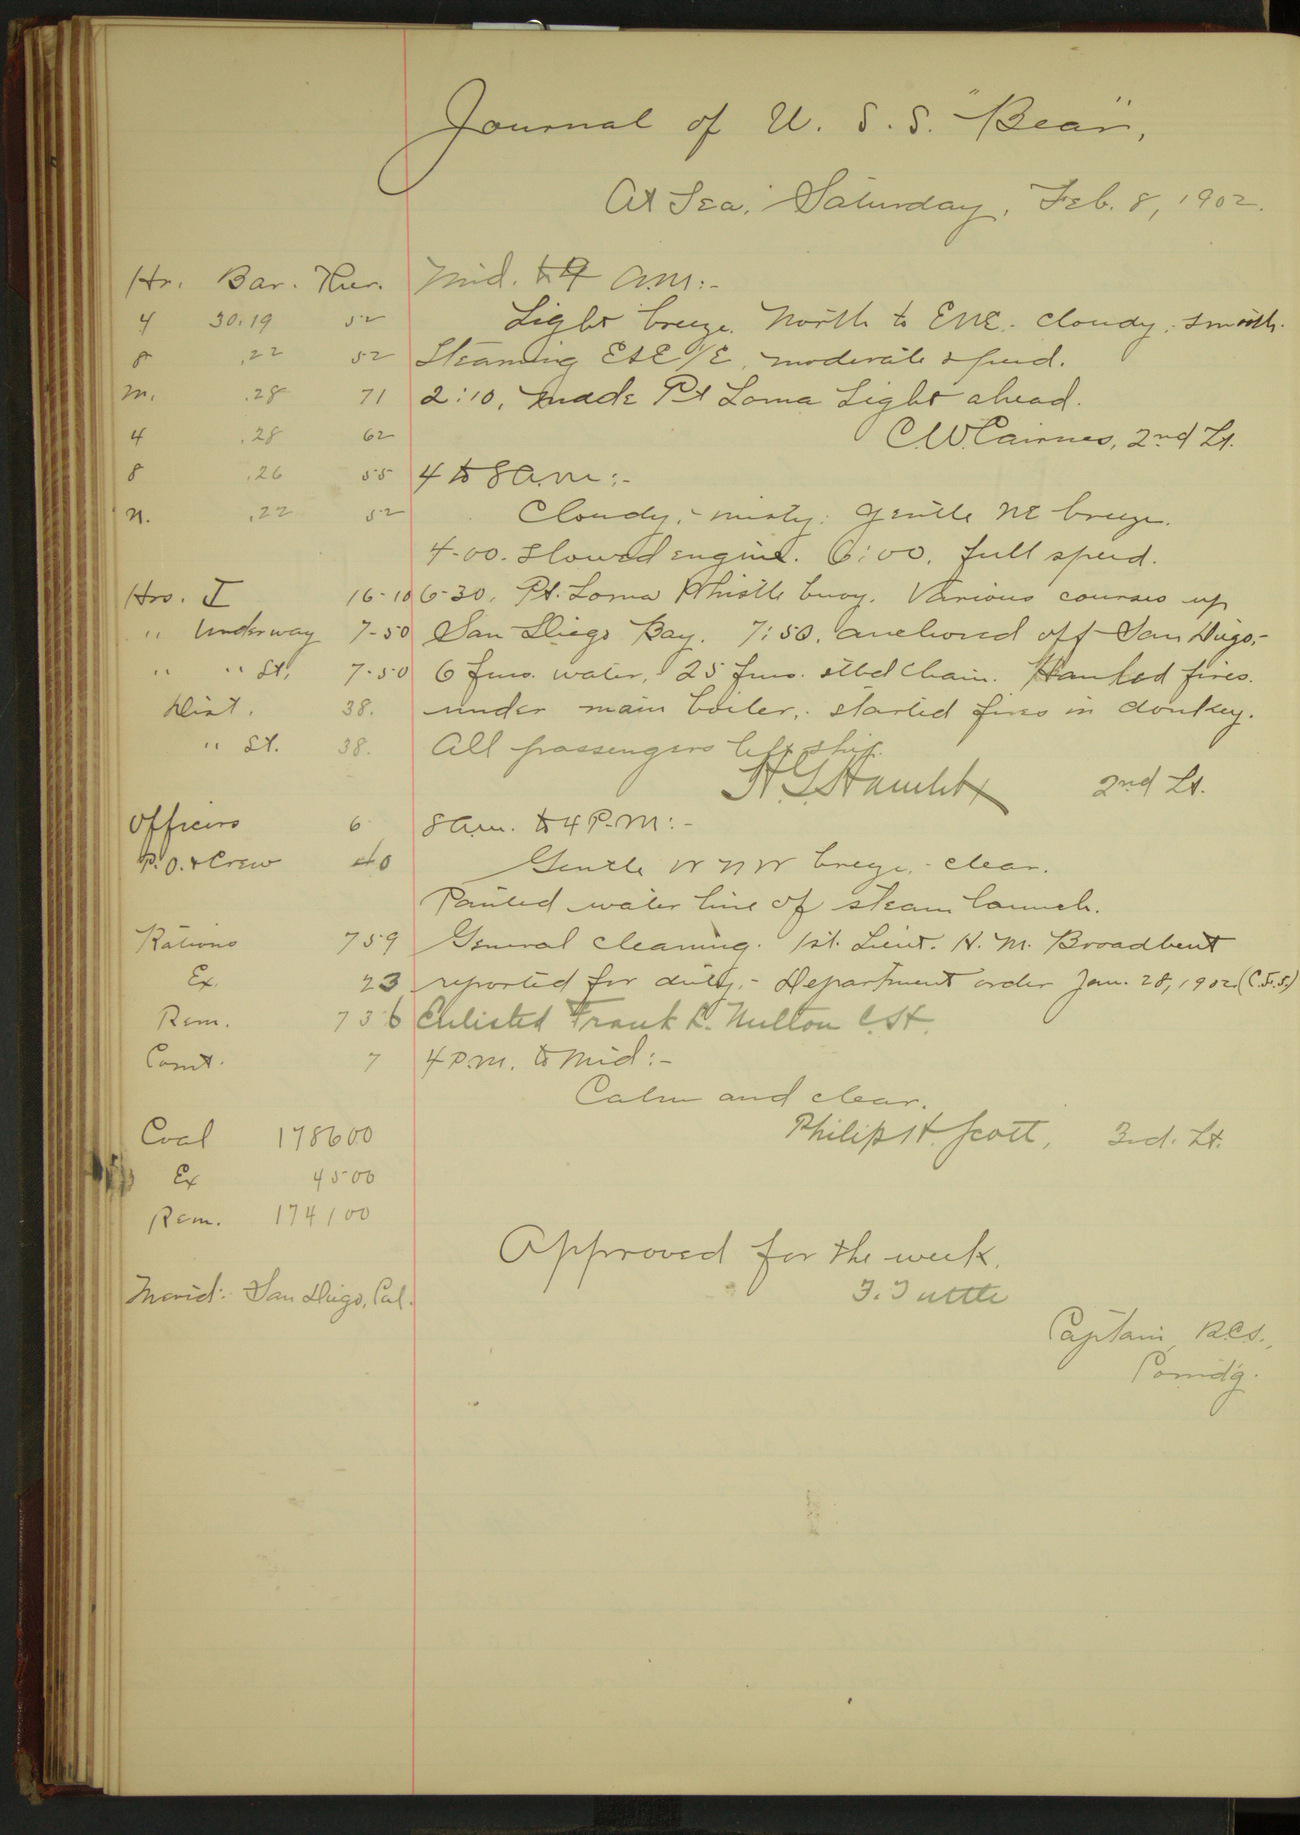 Journal of U. S. S. "Bear",
At Sea, Saturday, Feb. 8, 1902.
Hr. Bar. Ther.
4 30.19 52
8 .22 52
M. .28 71
4 .28 62
8 .26 55
N. .22 52
Hrs. I 16-10
" Underway 7-50
" " St. 7-50
Dist. 38.
" St. 38.
Officers 6
P.O. & Crew 40
Rations 759
Ex. 23
Rem. 736
Comt. 7
Coal 178600
Ex 4500
Rem. 174100
Merid: San Diego, Cal.
Mid. to 4 A.M:-
Light breeze North to ENE. cloudy, smooth.
Steaming ESE/E, moderate speed.
2:10, made Pt Loma Light ahead.
C.W. Cairnes, 2nd Lt.
4 to 8 A.M:-
Cloudy, misty; gentle NE breeze.
4-00. slowed engine. 6:00, full speed.
6-30, Pt. Loma Whistle buoy. Various courses up
San Diego Bay. 7:50, anchored off San Diego,-
6 fms. water, 25 fms. stbd chain. Hauled fires
under main boiler, started fires in donkey.
All passengers left ship.
H.G. Hamlet 2nd Lt.
8 a.m. to 4 P.M:-
Gentle WNW breeze,- clear.
Painted water line of steam launch.
General cleaning. 1st. Lieut. H. M. Broadbent
reported for duty,- Department order Jan. 28, 1902 (C.F.S.)
Enlisted Frank L. Hilton C.St.
4 P.M. to Mid:-
Calm and clear.
Philip H. Scott, 3rd. Lt.
Approved for the week.
F. Tuttle
Captain, R.C.S.,
Comd'g.